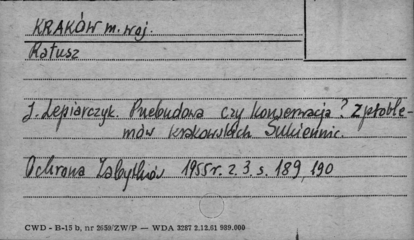 KRAKÓW m. woj.
Ratusz
J. Lepiarczyk. Przebudowa czy konserwacja? Z proble-
mów krakowskich Sukiennic.
Ochrona Zabytków 1955 r. z. 3, s. 189, 190
CWD - B-15 b, nr 2630/ZW/P — WDA 3287 2.12.61 989.000